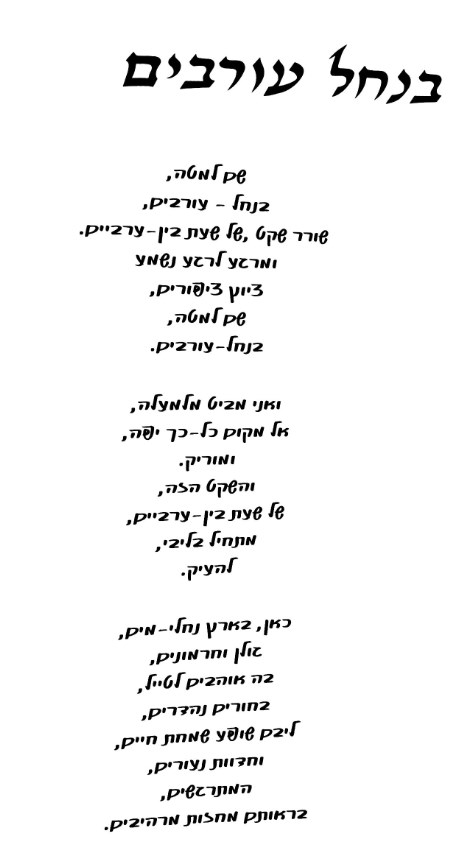 בנחל עורבים
שם למטה,
בנחל - עורבים,
שורר שקט, של שעת בין-ערביים.
ומרגע לרגע נשמע
ציוץ ציפורים,
שם למטה,
בנחל-עורבים.
ואני מביט מלמעלה,
אל מקום כל-כך יפה,
ומוריק.
והשקט הזה,
של שעת בין-ערביים,
מתחיל בליבי,
להציק.
כאן, בארץ נחלי-מים,
גולן וחרמונים,
בה אוהבים לטייל,
בחורים נהדרים,
ליבם שופע שמחת חיים,
וחדוות נעורים,
המתרגשים,
בראותם מחזות מרהיבים.